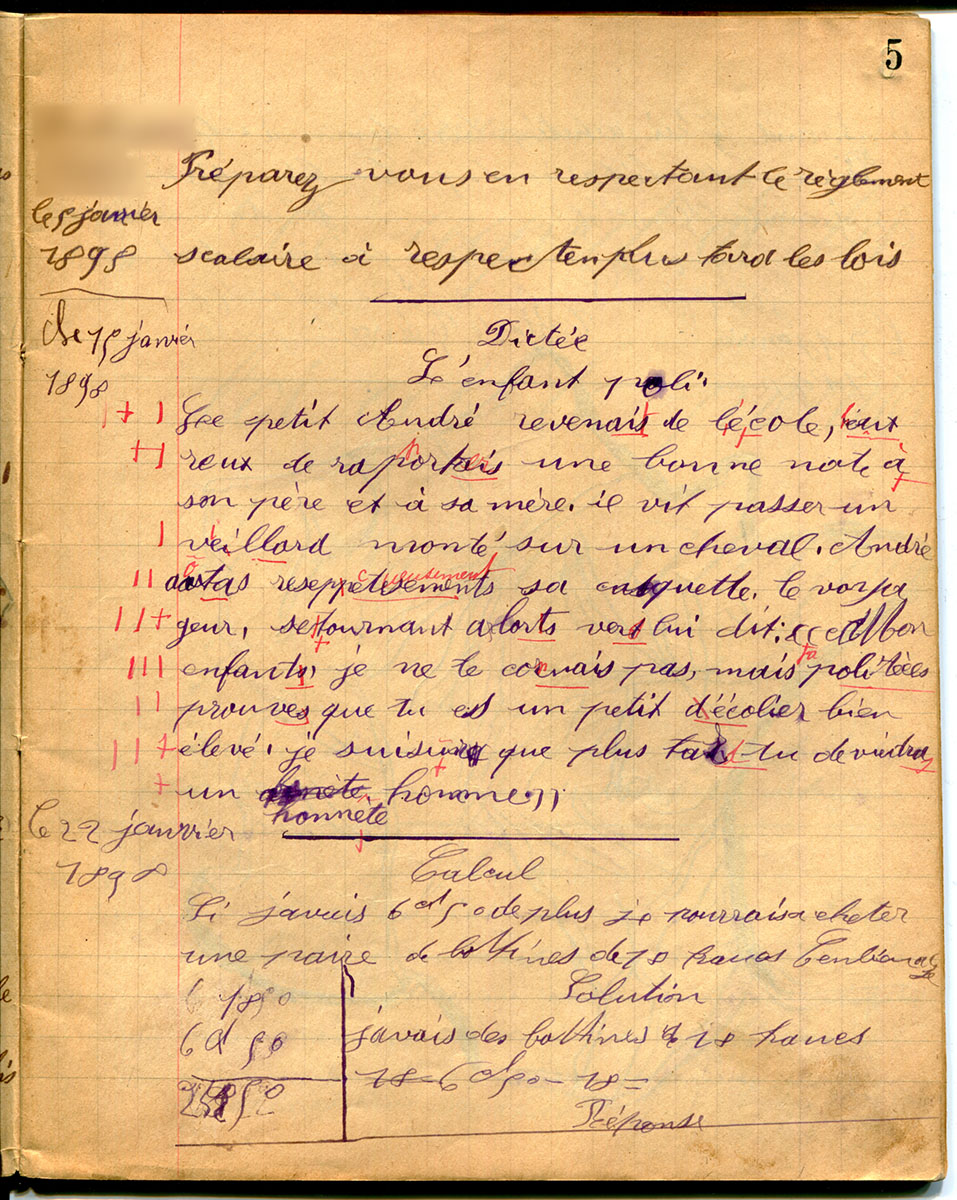 5
Préparez vous en respectant le règlement
le 5 janvier
1898 scolaire à respecter plus tard les lois
le 15 janvier
1898
Dictée
L'enfant poli.
Le petit André revenais de l'école,
reux de raportais une bonne note à
son père et à sa mère. il vit passer un
veillard monté sur un cheval. André
sa casquette. le voya
geur, se tournant alorts vers lui dit: «Mon
enfants, je ne te connais pas, mais politèes
prouves que tu es un petit d'écolier bien
élevé. je suis que plus tard tu deviédras
un honnete homme»
le 22 janvrier
1898
Calcul
Si javais 6 d 50 de plus je pourrais acheter
une paire de bottines de 18 francs
Solution
6 d 50 javais des bottines 18 francs
18 - 6 d 50 - 18 =
Réponse